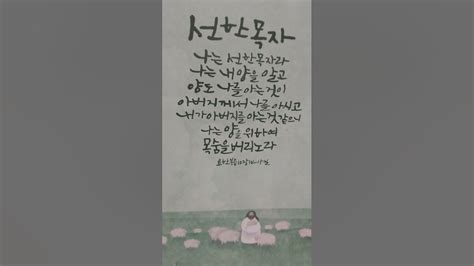 선한목자
나는 선한목자라
나는 내 양을 알고
양도 나를 아는것이
아버지께서 나를 아시고
내가 아버지를 아는것 같으니
나는 양을 위하여
목숨을 버리노라
요한복음